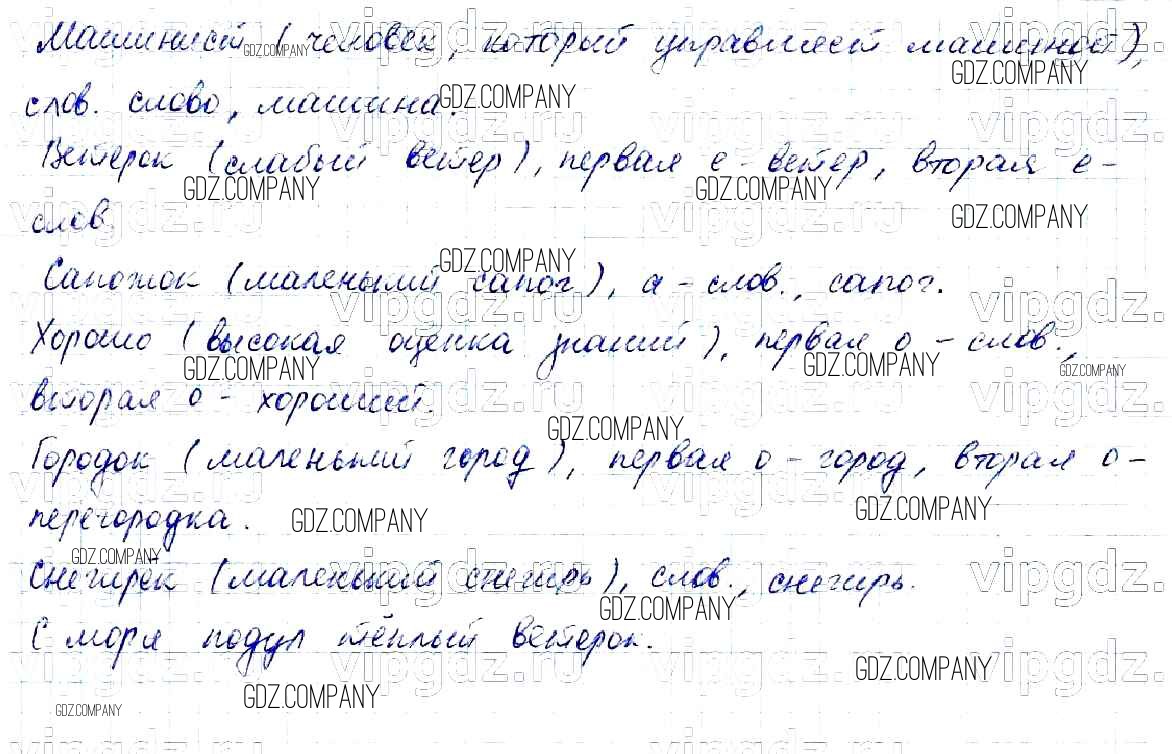 Машинист (человек, который управляет машиной),
слов. слово, машина.
Ветерок (слабый ветер), первая е - ветер, вторая е -
слов.
Сапожок (маленький сапог), а - слов., сапог.
Хорошо (высокая оценка знаний), первая о - слов.,
вторая о - хороший.
Городок (маленький город), первая о - город, вторая о -
перегородка.
Снегирёк (маленький снегирь), слов., снегирь.
С моря подул тёплый ветерок.
GDZ.COMPANY
vipgdz.ru